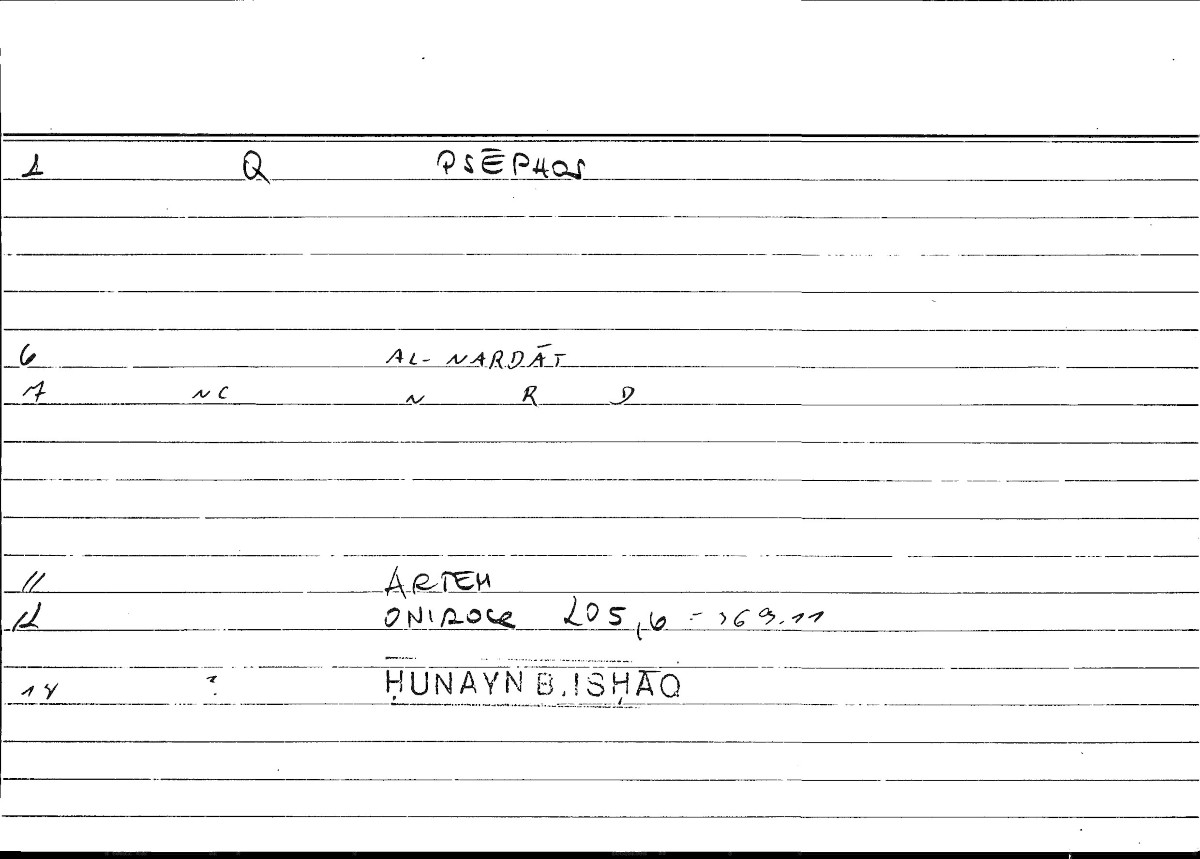 1 Q PSĒPHOS
6 AL-NARDĀT
7 NC N R D
11 ARTEM
12 ONIROCR 205,6 = 369.11
14 ? ḤUNAYN B. ISḤĀQ